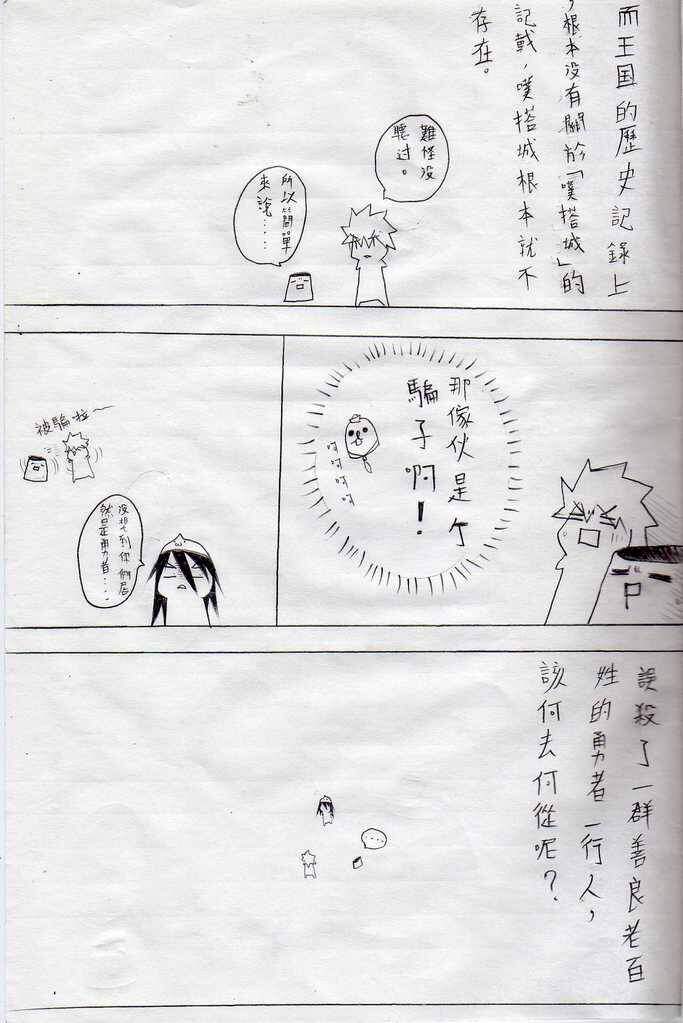 而王国的歷史記錄上
，根本没有關於「噗搭城」的
記載，噗搭城根本就不
存在。
難怪没
聽过。
所以簡單
來說……
那傢伙是个
騙子啊！
呵呵呵呵
被騙啦～
没想到你們居
然是勇者…．
誤殺了一群善良老百
姓的勇者一行人，
該何去何從呢？
….